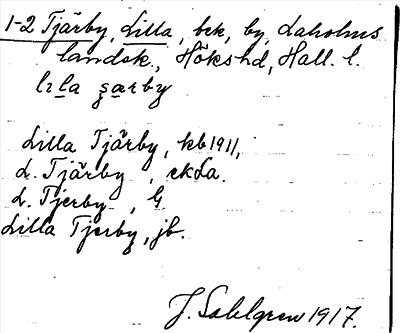 1-2 Tjärby, Lilla, bek, by, Laholms
landsk., Höks hd, Hall. l.
lıla şarby
Lilla Tjärby, kb 1911,
L. Tjärby, ekLa.
L. Tjerby, G
Lilla Tjerby, jb.
J. Sahlgren 1917.